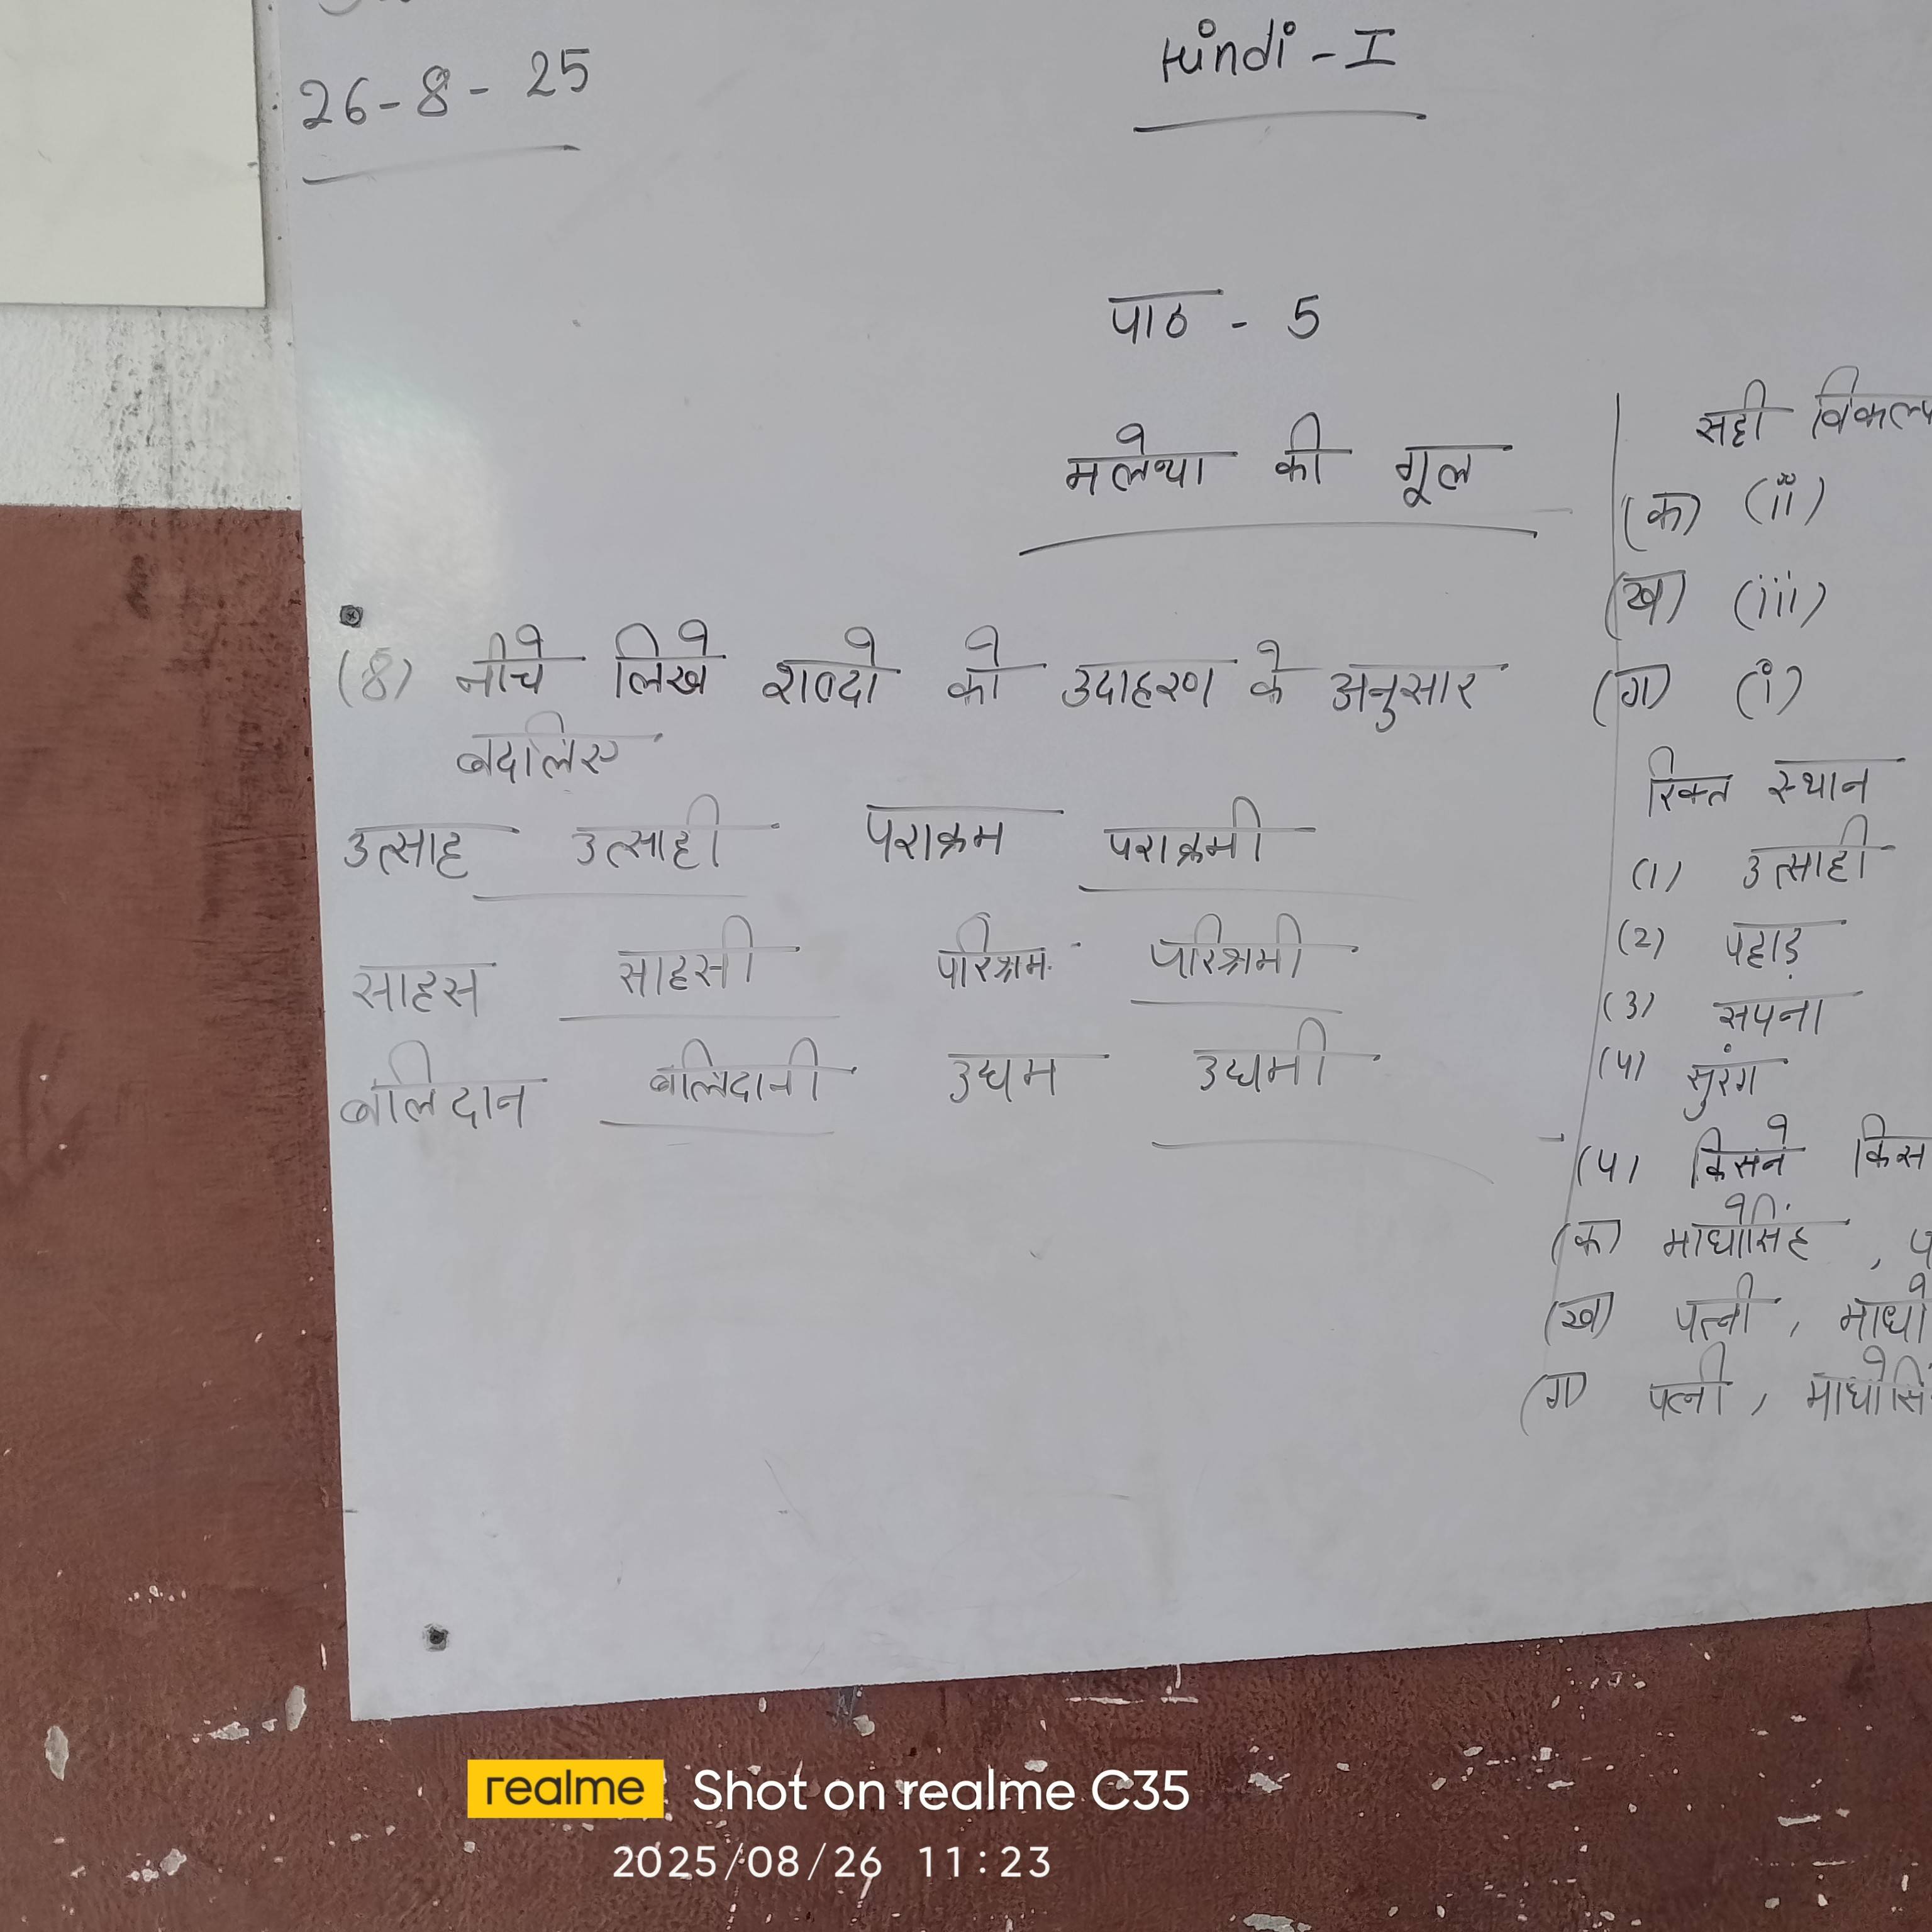 26-8-25
Hindi - I
पाठ - 5
मलेथा की गूल
(8) नीचे लिखे शब्दो को उदाहरण के अनुसार
बदलिए
उत्साह उत्साही पराक्रम पराक्रमी
साहस साहसी परिश्रम परिश्रमी
बलिदान बलिदानी उधम उधमी
सही विकल्प
(क) (ii)
(ख) (iii)
(ग) (i)
रिक्त स्थान
(1) उत्साही
(2) पहाड़
(3) सपना
(4) सुरंग
(4) किसने किस
(क) माधोसिंह , प
(ख) पत्नी , माधो
(ग) पत्नी , माधोसिं
realme Shot on realme C35
2025/08/26 11:23